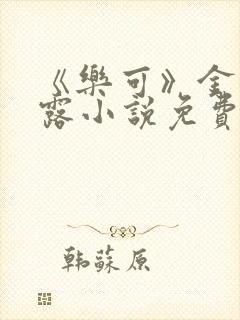 《樂可》金
露小說免費
韩蘇原